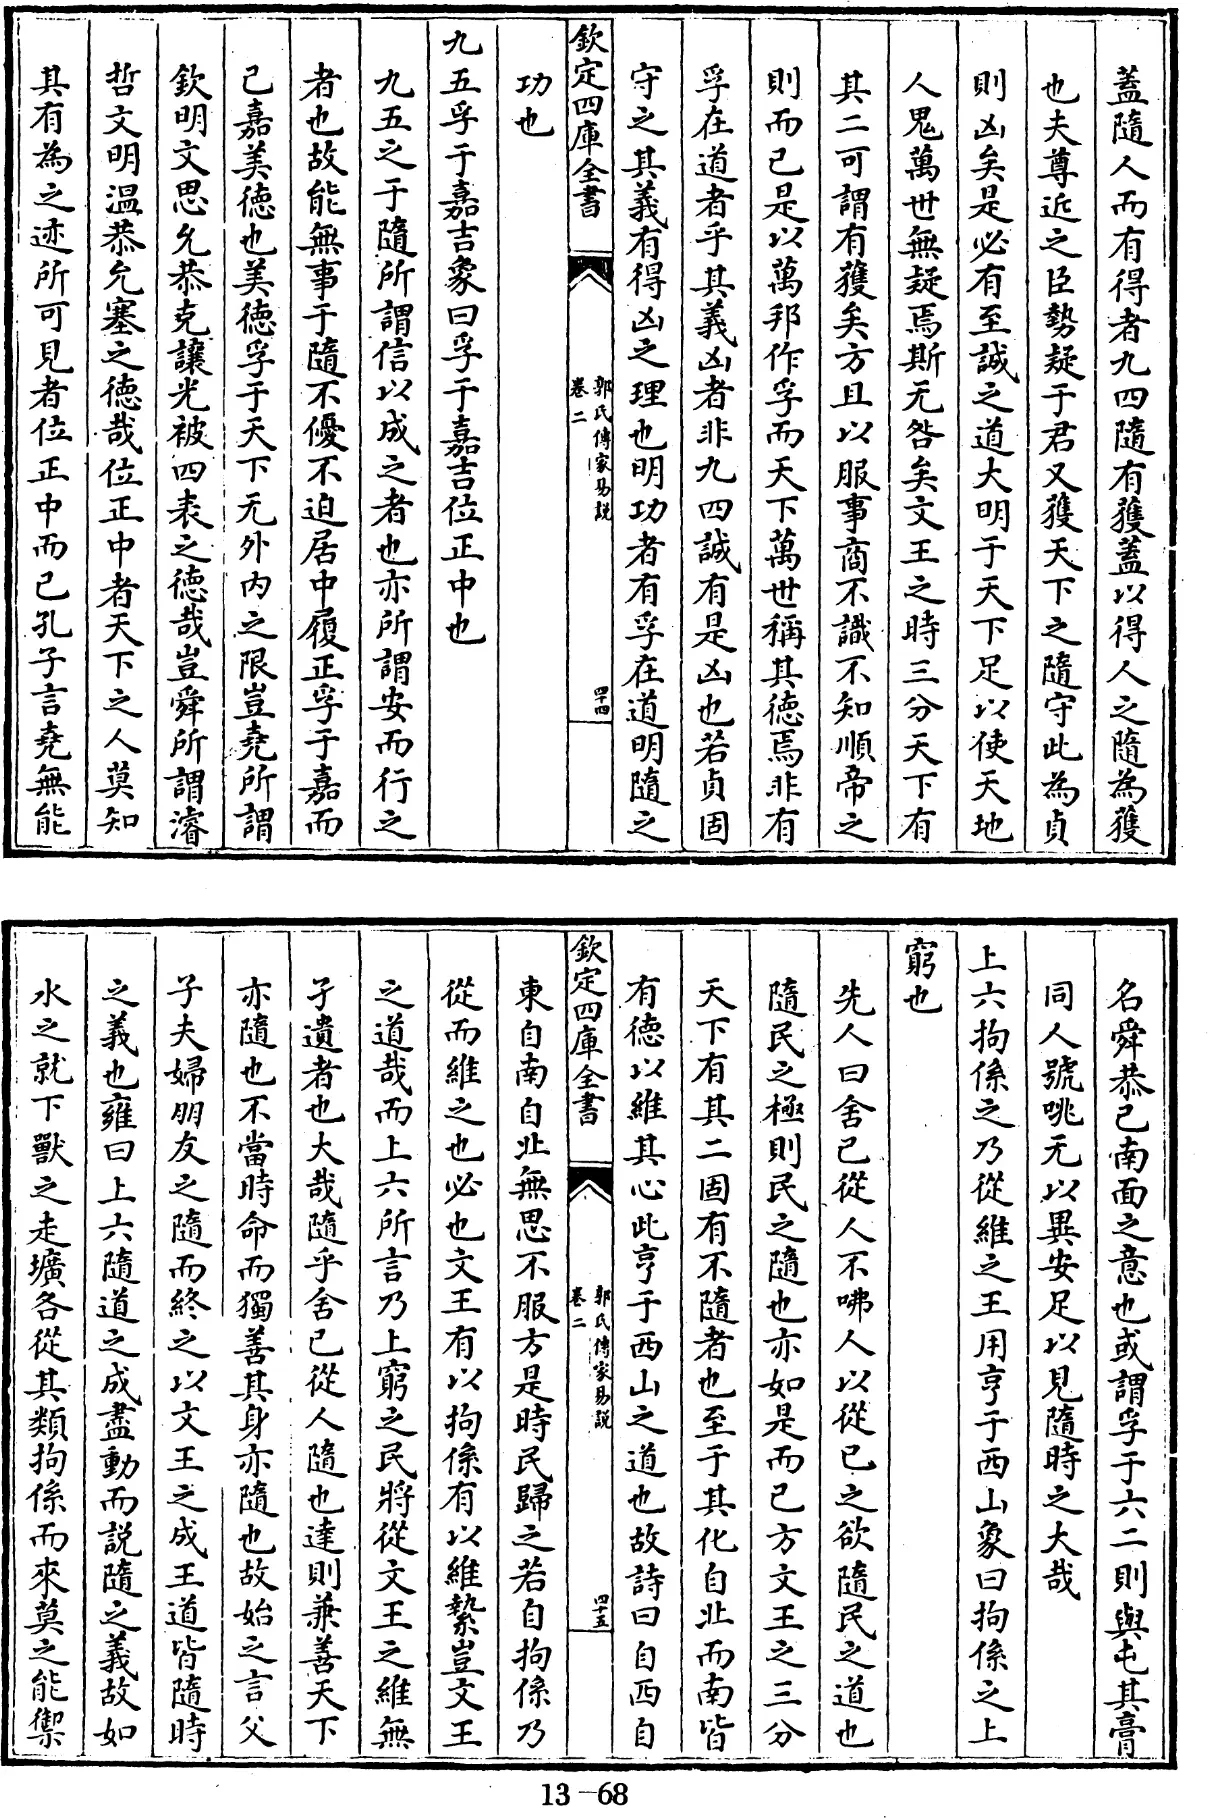 蓋隨人而有得者九四隨有獲蓋以得人之隨為獲
也夫尊近之臣勢疑于君又獲天下之隨守此為貞
則凶矣是必有至誠之道大明于天下足以使天地
人鬼萬世無疑焉斯无咎矣文王之時三分天下有
其二可謂有獲矣方且以服事商不識不知順帝之
則而已是以萬邦作孚而天下萬世稱其德焉非有
孚在道者乎其義凶者非九四誠有是凶也若貞固
守之其義有得凶之理也明功者有孚在道明隨之
欽定四庫全書
郭氏傳家易說
卷二
四十四
功也
九五孚于嘉吉象曰孚于嘉吉位正中也
九五之于隨所謂信以成之者也亦所謂安而行之
者也故能無事于隨不優不迫居中履正孚于嘉而
已嘉美德也美德孚于天下无外內之限豈堯所謂
欽明文思允恭克讓光被四表之德哉豈舜所謂濬
哲文明溫恭允塞之德哉位正中者天下之人莫知
其有為之迹所可見者位正中而已孔子言堯無能
名舜恭己南面之意也或謂孚于六二則與屯其膏
同人號咷无以異安足以見隨時之大哉
上六拘係之乃從維之王用亨于西山象曰拘係之上
窮也
先人曰舍己從人不咈人以從己之欲隨民之道也
隨民之極則民之隨也亦如是而已方文王之三分
天下有其二固有不隨者也至于其化自北而南皆
有德以維其心此亨于西山之道也故詩曰自西自
欽定四庫全書
郭氏傳家易說
卷二
四十五
東自南自北無思不服方是時民歸之若自拘係乃
從而維之也必也文王有以拘係有以維縶豈文王
之道哉而上六所言乃上窮之民將從文王之維無
孑遺者也大哉隨乎舍己從人隨也達則兼善天下
亦隨也不當時命而獨善其身亦隨也故始之言父
子夫婦朋友之隨而終之以文王之成王道皆隨時
之義也雍曰上六隨道之成盡動而說隨之義故如
水之就下獸之走壙各從其類拘係而來莫之能禦
13-68